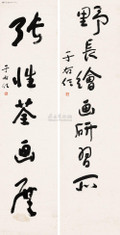 野長繪画研習所
于右任
張性荃画展
于右任